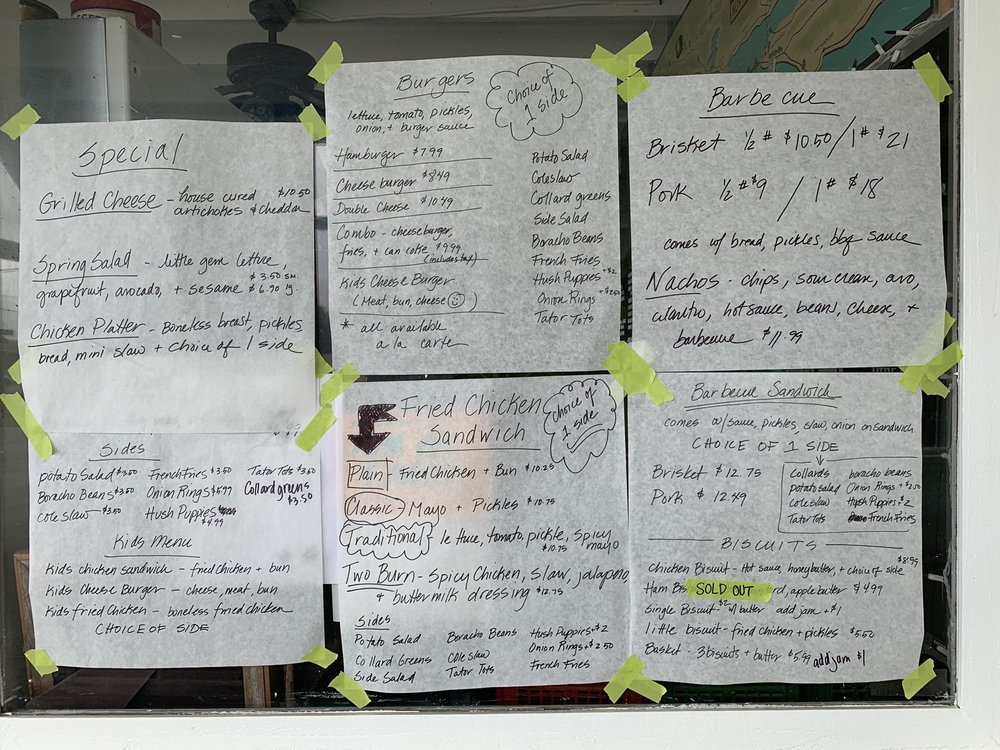 Special
Grilled Cheese - house cured $10.50
artichokes & cheddar
Spring Salad - little gem lettuce,
grapefruit, avocado, + sesame $3.50 sm. $6.90 lg.
Chicken Platter - Boneless breast, pickles
bread, mini slaw + choice of 1 side
Sides
potato Salad $3.50 French Fries $3.50 Tator Tots $3.50
Boracho Beans $3.50 Onion Rings $5.99 Collard greens $3.50
Cole Slaw $3.50 Hush Puppies $4.99
Kids Menu
Kids chicken sandwich - fried chicken + bun
Kids Cheese Burger - cheese, meat, bun
Kids fried Chicken - boneless fried chicken
CHOICE OF SIDE
Burgers
Choice of
1 side
lettuce, tomato, pickles,
onion, + burger sauce
Hamburger $7.99
Cheese burger $8.49
Double Cheese $10.49
Combo - cheese burger,
fries, + can coke $9.99
(includes tax)
Kids Cheese Burger
(Meat, bun, cheese)
* all available
a la carte
Potato Salad
Coleslaw
Collard greens
Side Salad
Boracho Beans
French Fries
Hush Puppies +$2
Onion Rings +$2.50
Tator Tots
Fried Chicken
Sandwich
Choice of
1 side
Plain - Fried Chicken + Bun $10.25
Classic Mayo + Pickles $10.75
Traditional - lettuce, tomato, pickle, spicy
mayo
$10.75
Two Burn - Spicy Chicken, slaw, jalapeno
+ buttermilk dressing $12.75
Sides
Potato Salad Boracho Beans Hush Puppies +$2
Collard Greens Cole Slaw Onion Rings +$2.50
Side Salad Tator Tots French Fries
Barbecue
Brisket 1/2 # $10.50 / 1# $21
Pork 1/2 # $9 / 1# $18
comes w/ bread, pickles, bbq sauce
Nachos - chips, sour cream, avo,
cilantro, hot sauce, beans, cheese, +
barbecue $11.99
Barbecue Sandwich
comes w/ sauce, pickles, slaw, onion on sandwich
CHOICE OF 1 SIDE
Brisket $12.75
Pork $12.49
Collards boracho beans
potato salad Onion Rings +$2.50
Cole slaw Hush Puppies +$2
Tator Tots French Fries
BISCUITS
Chicken Biscuit - Hot sauce, honey butter, + choice of side $8.99
Ham Bis SOLD OUT rd, apple butter $4.99
Single Biscuit $2 w/ butter add jam +$1
little biscuit - fried chicken + pickles $5.50
Basket - 3 biscuits + butter $5.99 add jam $1